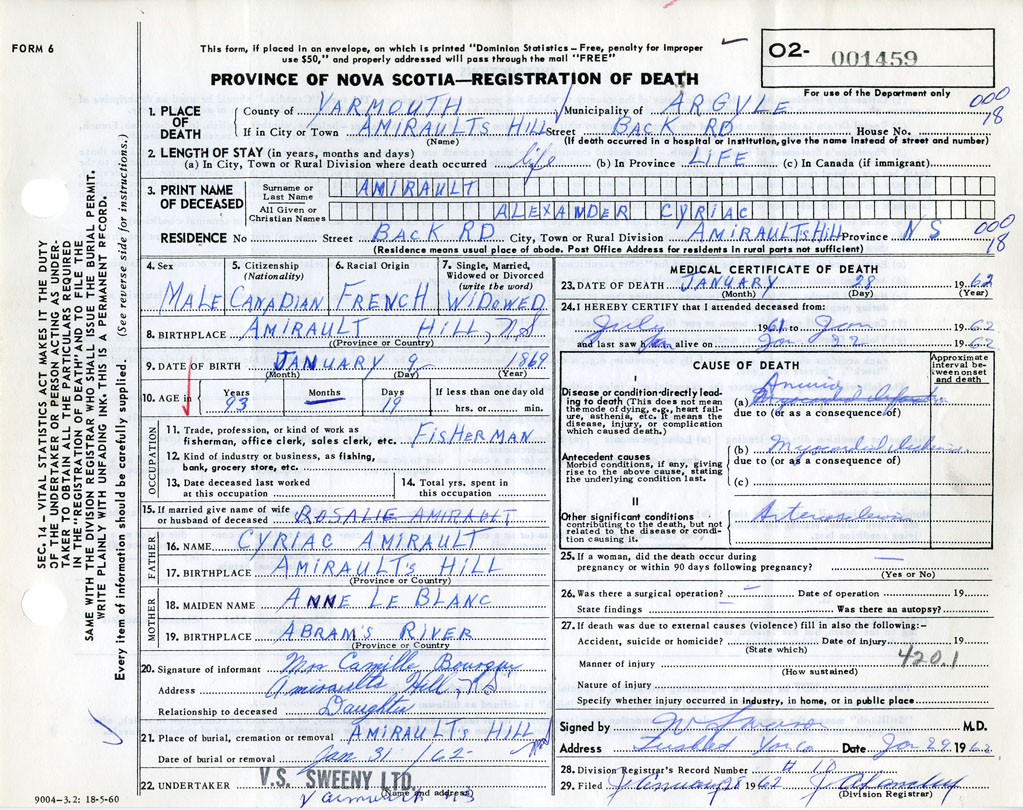 FORM 6
This form, if placed in an envelope, on which is printed "Dominion Statistics – Free, penalty for improper
use $50," and properly addressed will pass through the mail "FREE"
PROVINCE OF NOVA SCOTIA—REGISTRATION OF DEATH
O2- 001459
For use of the Department only
1. PLACE OF DEATH
County of YARMOUTH Municipality of ARGYLE 000
If in City or Town AMIRAULTS HILL Street BACK RD House No. 18
(Name) (If death occurred in a hospital or institution, give the name instead of street and number)
2. LENGTH OF STAY (in years, months and days)
(a) In City, Town or Rural Division where death occurred life (b) In Province LIFE (c) In Canada (if immigrant)
3. PRINT NAME OF DECEASED
Surname or Last Name AMIRAULT
All Given or Christian Names ALEXANDER CYRIAC
RESIDENCE No Street BACK RD City, Town or Rural Division AMIRAULTS HILL Province N S 000 18
(Residence means usual place of abode. Post Office Address for residents in rural parts not sufficient)
4. Sex MALE
5. Citizenship (Nationality) CANADIAN
6. Racial Origin FRENCH
7. Single, Married, Widowed or Divorced (write the word) WIDOWED
8. BIRTHPLACE AMIRAULT HILL, NS
(Province or Country)
9. DATE OF BIRTH JANUARY 9 1869
(Month) (Day) (Year)
10. AGE in Years 93 Months — Days 19 If less than one day old hrs. or min.
OCCUPATION
11. Trade, profession, or kind of work as
fisherman, office clerk, sales clerk, etc. FISHERMAN
12. Kind of industry or business, as fishing,
bank, grocery store, etc.
13. Date deceased last worked
at this occupation
14. Total yrs. spent in
this occupation
15. If married give name of wife
or husband of deceased ROSALIE AMIRAULT
FATHER
16. NAME CYRIAC AMIRAULT
17. BIRTHPLACE AMIRAULTS HILL
(Province or Country)
MOTHER
18. MAIDEN NAME ANNE LE BLANC
19. BIRTHPLACE ABRAM'S RIVER
(Province or Country)
20. Signature of informant Mrs Camille Bourque
Address Amiraults Hill, N.S.
Relationship to deceased Daughter
21. Place of burial, cremation or removal AMIRAULTS HILL NS
Date of burial or removal Jan. 31 /62
22. UNDERTAKER V.S. SWEENY LTD.
(Name and address)
Yarmouth NS
9004-3.2: 18-5-60
MEDICAL CERTIFICATE OF DEATH
23. DATE OF DEATH JANUARY 28 1962
(Month) (Day) (Year)
24. I HEREBY CERTIFY that I attended deceased from:
July 1961 to Jan 1962
and last saw him alive on Jan 22 1962
CAUSE OF DEATH
Approximate interval between onset and death
I
Disease or condition directly leading to death (This does not mean the mode of dying, e.g., heart failure, asthenia, etc. It means the disease, injury, or complication which caused death.)
(a)
due to (or as a consequence of)
Antecedent causes
Morbid conditions, if any, giving rise to the above cause, stating the underlying condition last.
(b) Myocardial
due to (or as a consequence of)
(c)
II
Other significant conditions
contributing to the death, but not related to the disease or condition causing it.
25. If a woman, did the death occur during
pregnancy or within 90 days following pregnancy? —
(Yes or No)
26. Was there a surgical operation? — Date of operation 19
State findings Was there an autopsy?
27. If death was due to external causes (violence) fill in also the following:-
Accident, suicide or homicide? Date of injury 19
(State which)
420.1
Manner of injury
(How sustained)
Nature of injury
Specify whether injury occurred in industry, in home, or in public place
Signed by M.D.
Address Tusket Yar Co Date Jan 29 1962
28. Division Registrar's Record Number # 10
29. Filed January 1962
(Division Registrar)
SEC. 14 – VITAL STATISTICS ACT MAKES IT THE DUTY
OF THE UNDERTAKER OR PERSON ACTING AS UNDER-
TAKER TO OBTAIN ALL THE PARTICULARS REQUIRED
IN THE "REGISTRATION OF DEATH" AND TO FILE THE
SAME WITH THE DIVISION REGISTRAR WHO SHALL ISSUE THE BURIAL PERMIT.
WRITE PLAINLY WITH UNFADING INK. THIS IS A PERMANENT RECORD.
Every item of information should be carefully supplied. (See reverse side for instructions.)